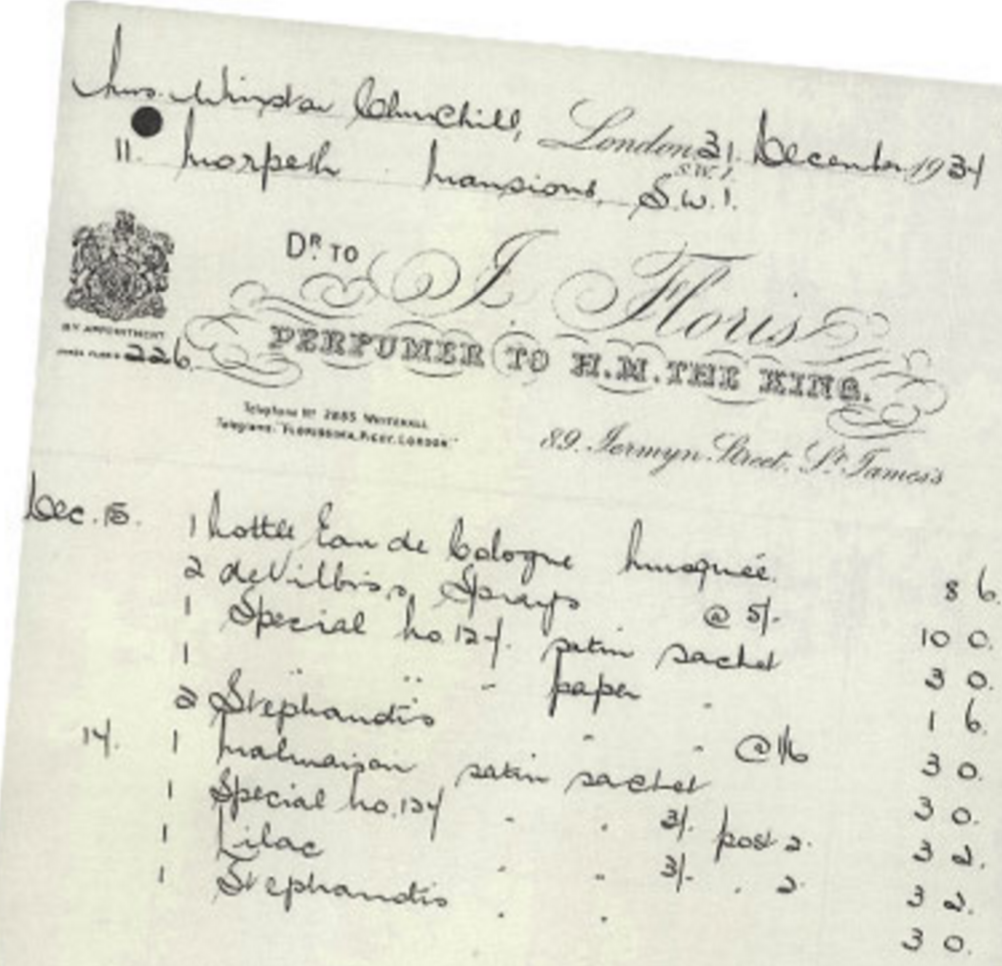 Mrs. Winston Churchill,
London 31 December 1934
S.W.1.
11. Morpeth Mansions, S.W.1.
DR. TO J. Floris
BY APPOINTMENT
226
PERFUMER TO H.M. THE KING.
Telephone No 2885 WHITEHALL
Telegrams: "FLORISSIMA, PICCY, LONDON"
89. Jermyn Street, St. James's
Dec. 15. 1 bottle Eau de Cologne 8 6.
2 deVilbiss Sprays @ 5/- 10 0.
1 Special No. 127. satin sachet 3 0.
1 " " paper " 1 6.
2 Stephandis " " @ 1/6 3 0.
14. 1 Malmaison satin sachet 3 0.
1 Special No. 127 " " 3/- post 2. 3 2.
1 Lilac " " 3/- " 2. 3 2.
1 Stephandis " " 3 0.